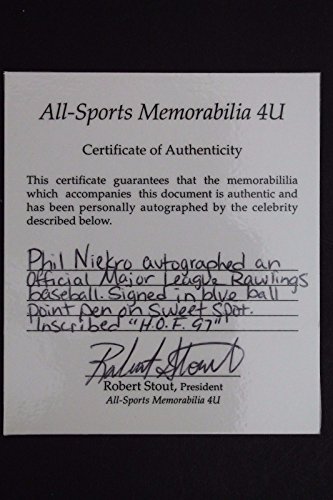 All-Sports Memorabilia 4U
Certificate of Authenticity
This certificate guarantees that the memorabililia
which accompanies this document is authentic and
has been personally autographed by the celebrity
described below.
Phil Niekro autographed an
Official Major League Rawlings
baseball. Signed in blue ball
point pen on Sweet Spot.
Inscribed "H.O.F. 97"
Robert Stout
Robert Stout, President
All-Sports Memorabilia 4U